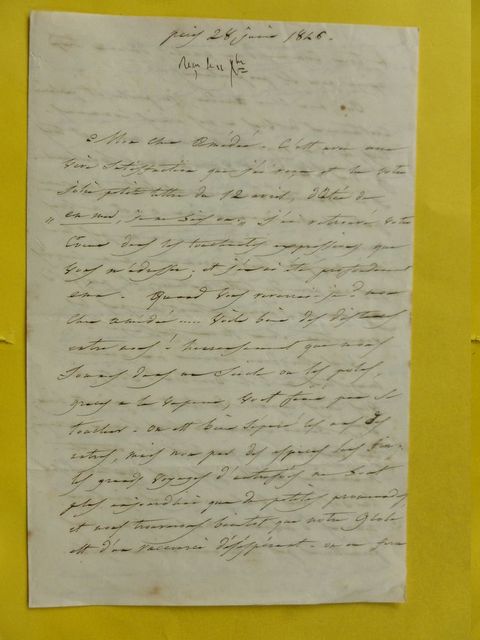 28 juin 1846.
Mon cher Amédée. C'est avec une
vive satisfaction que j'ai reçu et lu votre
jolie petite lettre du 12 avril, datée de
en mer, j'ai retrouvé votre
cœur dans les touchantes expressions que
vous m'adressez, et j'en ai été profondément
ému. Quand vous reverrai-je? mon
cher Amédée .... Voilà bien des distances
entre nous! heureusement que nous
sommes dans un siècle où les pôles,
grâce à la vapeur, vont finir par se
toucher. on est bien séparé les uns des
autres, mais non par des espaces
les grands voyages d'autrefois ne sont
plus aujourd'hui que de petites promenades,
et nous trouverons bientôt que notre Globe
est d'un désespérant. on en fera